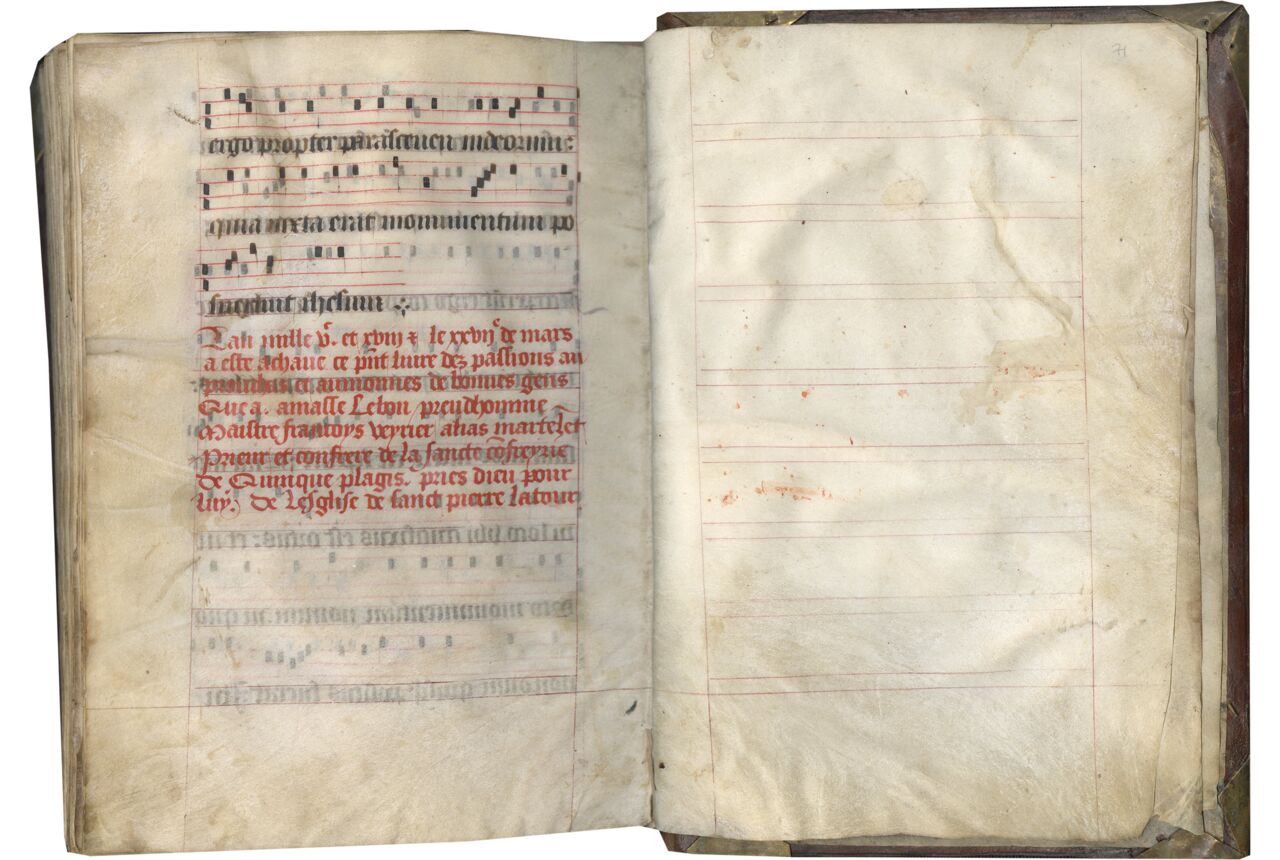 ergo propter parasceuen iudeorum:
quia iuxta erat monumentum po
suerunt ihesum
Lan mille vc. et xviii & le xxviic de mars
a este achaue ce pnt liure dez passions au
et aumonnes de bonnes gens
Que a. amasse Lebon preudhomme
Maistre francoys veyrier alias martelet
Prieur et confrere de la sancte cofreyrie
de Quinque plagis. pries dieu pour
luy. De Lesglise de sanct pierre latour
71